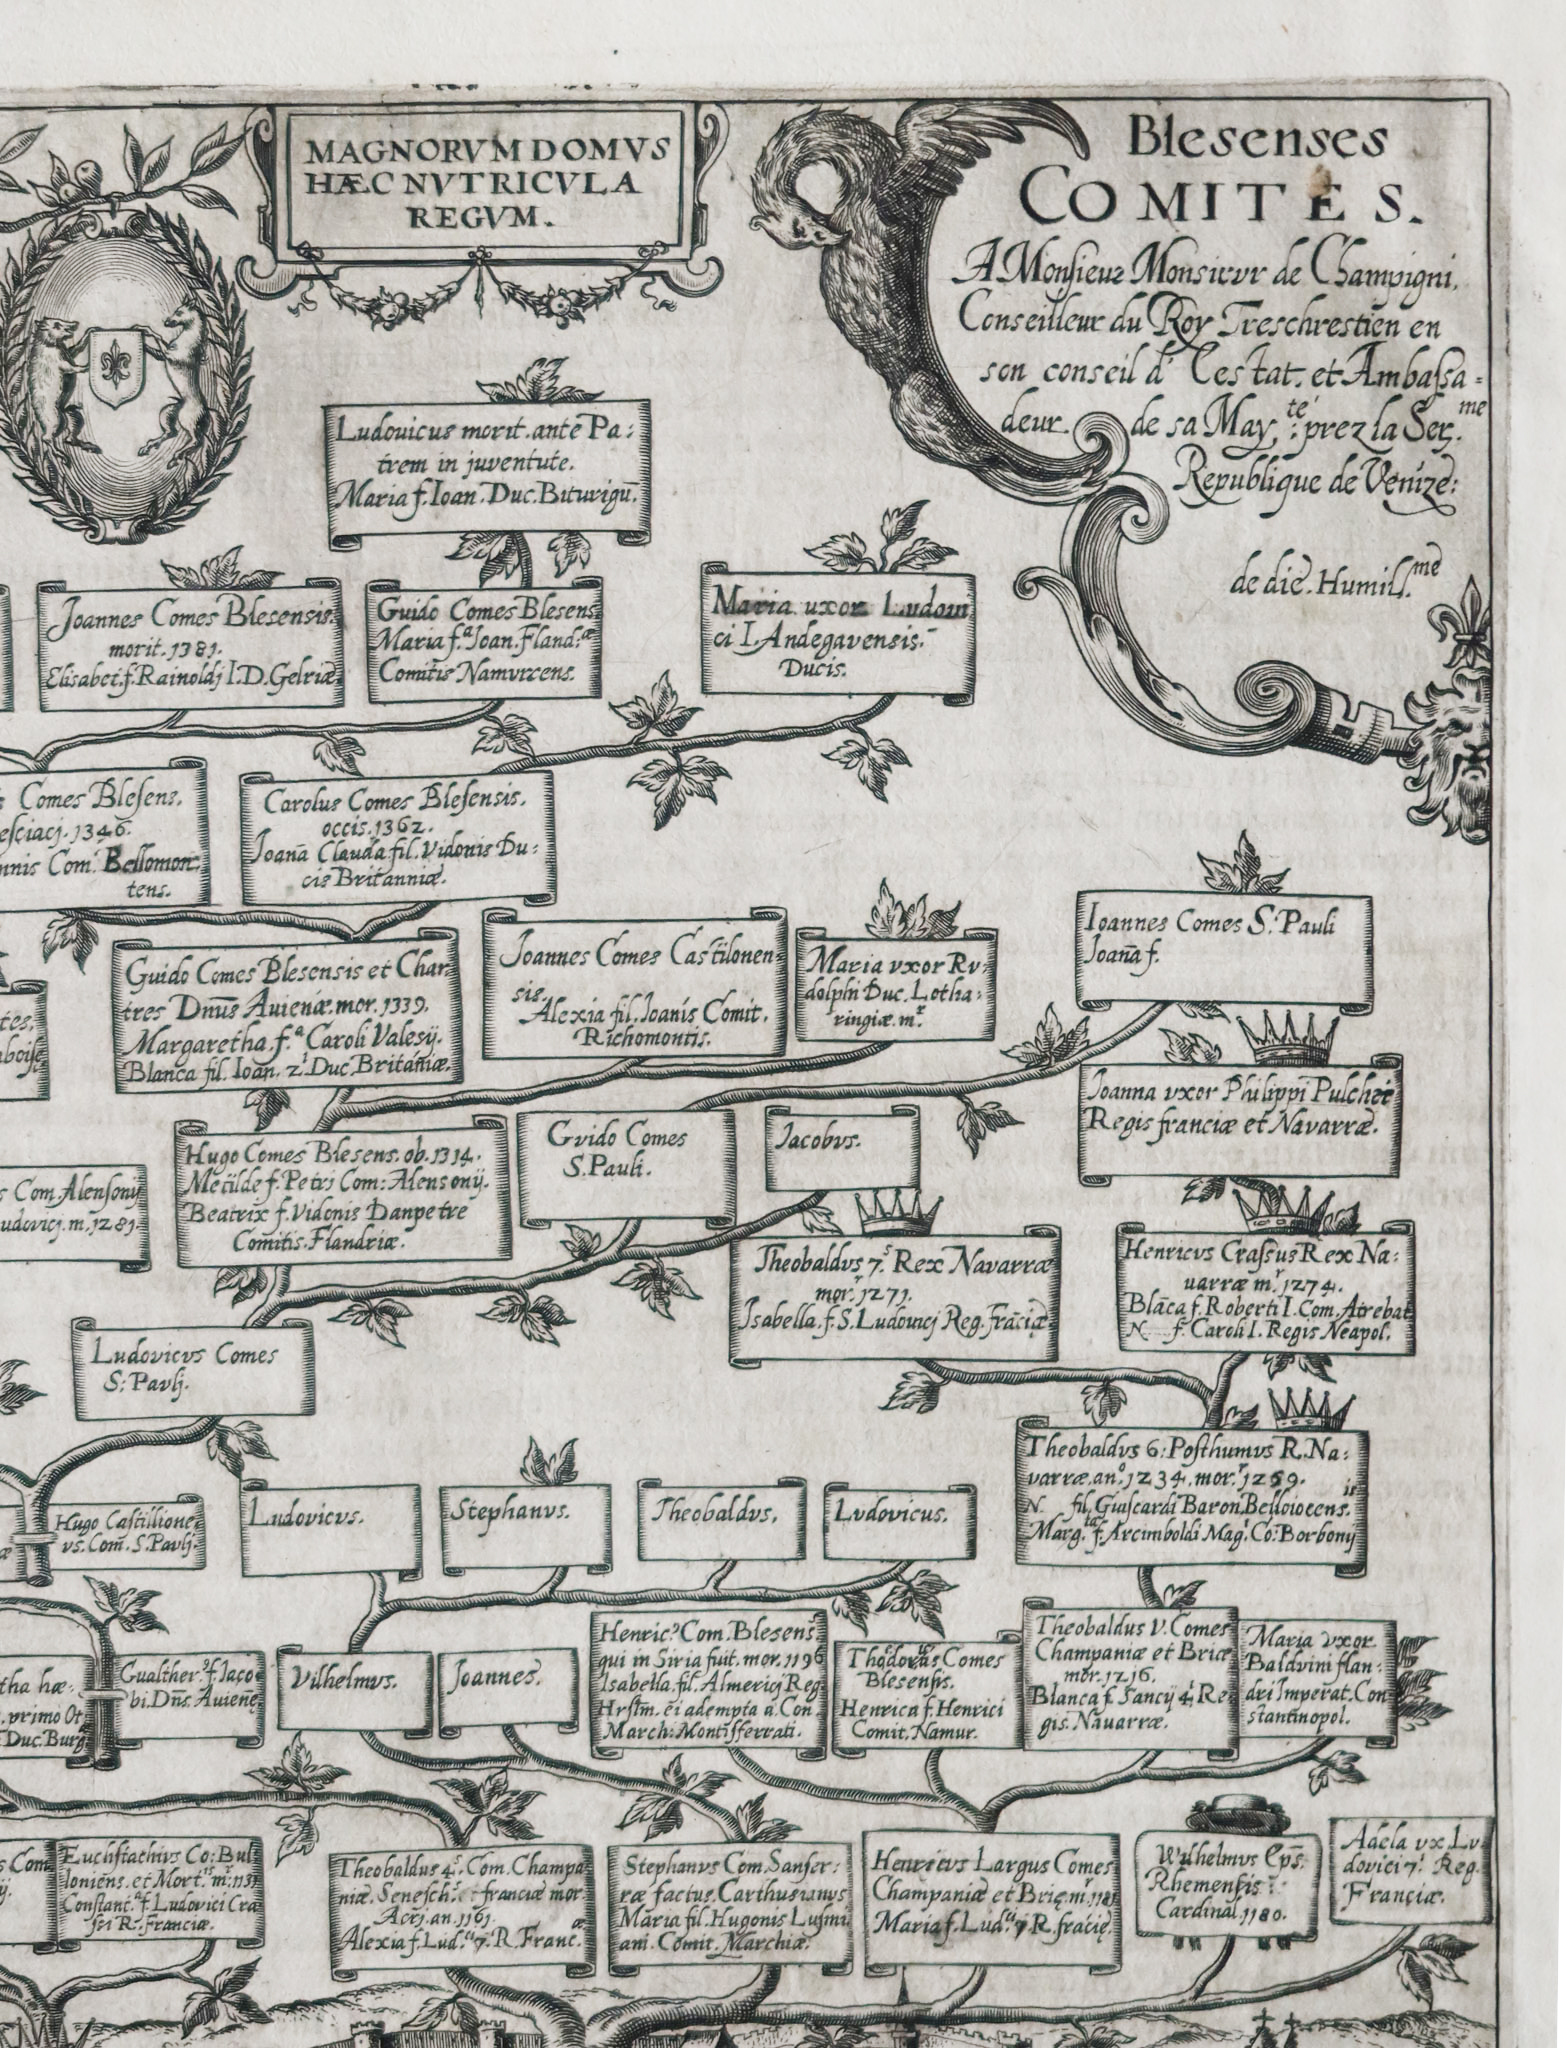 MAGNORVM DOMVS
HÆC NVTRICVLA
REGVM.
Blesenses
COMITES.
A Monsieur Monsieur de Champigni,
Conseilleur du Roy Treschrestien en
son conseil d' Cestat. et Ambassa=
deur de sa May.té prez la Ser.me
Republique de Venize:
de die. Humill.me
Ludouicus morit. ante Pa:
trem in juventute.
Maria f. Ioan. Duc. Biturigū.
Joannes Comes Blesensis.
morit. 1381.
Elisabet. f. Rainoldj I. D. Gelriæ
Guido Comes Blesens
Maria f.a Ioan. Fland.æ
Comitis Namurcens.
Maria uxor Ludoui
ci I. Andegavensis.
Ducis.
Comes Blesens.
1346.
Com. Bellomon
tens.
Carolus Comes Blesensis.
occis. 1362.
Joanā Clauda fil. Vidonis Du:
cis Britanniæ.
Guido Comes Blesensis et Char
tres Dnūs Auienæ. mor. 1339.
Margaretha. f.a Caroli Valesij.
Blanca fil. Ioan. 2.i Duc. Britāniæ.
Joannes Comes Castilonen
sis.
Alexia fil. Ioanis Comit.
Richomontis.
Maria vxor Rv:
dolphi Duc. Lotha:
ringiæ. m.r
Ioannes Comes S. Pauli
Joanā f.
Joanna vxor Philippi Pulchri
Regis franciæ et Navarræ.
Hugo Comes Blesens. ob. 1314.
Metilde f. Petri Com: Alensonij.
Beatrix f. Vidonis Danpetre
Comitis. Flandriæ.
Gvido Comes
S. Pauli.
Jacobvs.
Com. Alensonij
m. 1281.
Theobaldvs 7.s Rex Navarræ
mor.r 1271.
Isabella. f. S. Ludovicj Reg. frāciæ
Henricvs Crassus Rex Na:
uarræ m.r 1274.
Blāca f. Roberti I. Com. Atrebat
N. f. Caroli I. Regis Neapol.
Ludovicvs Comes
S: Pavlj.
Theobaldvs 6: Posthumvs R. Na:
varræ. an.o 1234. mor.r 1259.
N. fil. Guiscardi Baron. Belloiocens.
Marg.ta f. Arcimboldi Mag.i Co: Borbonij
Hugo Castillione
vs. Com. S. Pavlj.
Ludovicvs.
Stephanvs.
Theobaldvs.
Lvdovicus.
tha hæ:
primo Ot
Duc. Burg
Gualther.s f. Jaco
bi. Dns. Auiene
Vilhelmvs.
Joannes.
Henric.s Com. Blesens
qui in Siria fuit. mor. 1196
Isabella. fil. Almericj Reg
Hrslm. ei adempta a Con.
March: Montisferrati.
Comes
Blesensis.
Henrica f. Henrici
Comit. Namur.
Theobaldus V. Comes
Champaniæ et Briæ
mor. 1216.
Blanca f. Sancij 4.i Re
gis. Nauarræ.
Maria vxor
Baldvini flan:
dri Imperat. Con
stantinopol.
Com
Euchstachivs Co: Bul
loniens. et Mort.
Constanc. f. Ludovici Cra
ssi R. franciæ.
Theobaldus 4.s Com. Champa
niæ. Senesch. franciæ mor
Acrj. an. 1161.
Alexia f. Lud. 7. R. Franc.æ
Stephanvs Com. Sanser:
ræ factus. Carthusianvs
Maria fil. Hugonis Lusini
ani. Comit. Marchiæ.
Henricvs Largus Comes
Champaniæ et Briæ m.r 1181
Maria f. Lud. 7 R. fracię.
Wilhelmvs Eps.
Rhemensis
Cardinal. 1180.
Adela vx Lv
dovici 7.i Reg.
Franciæ.